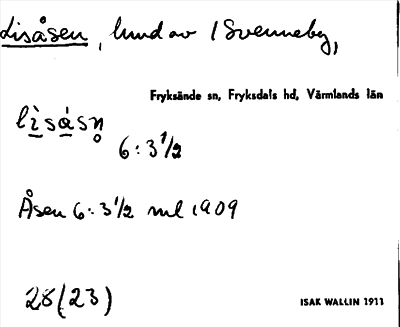 Lisåsen, lund av 1 Svenneby,
Fryksände sn, Fryksdals hd, Värmlands län
lìsásn̥
6:3 1/2
Åsen 6:3 1/2 ml 1909
28(23)
ISAK WALLIN 1911